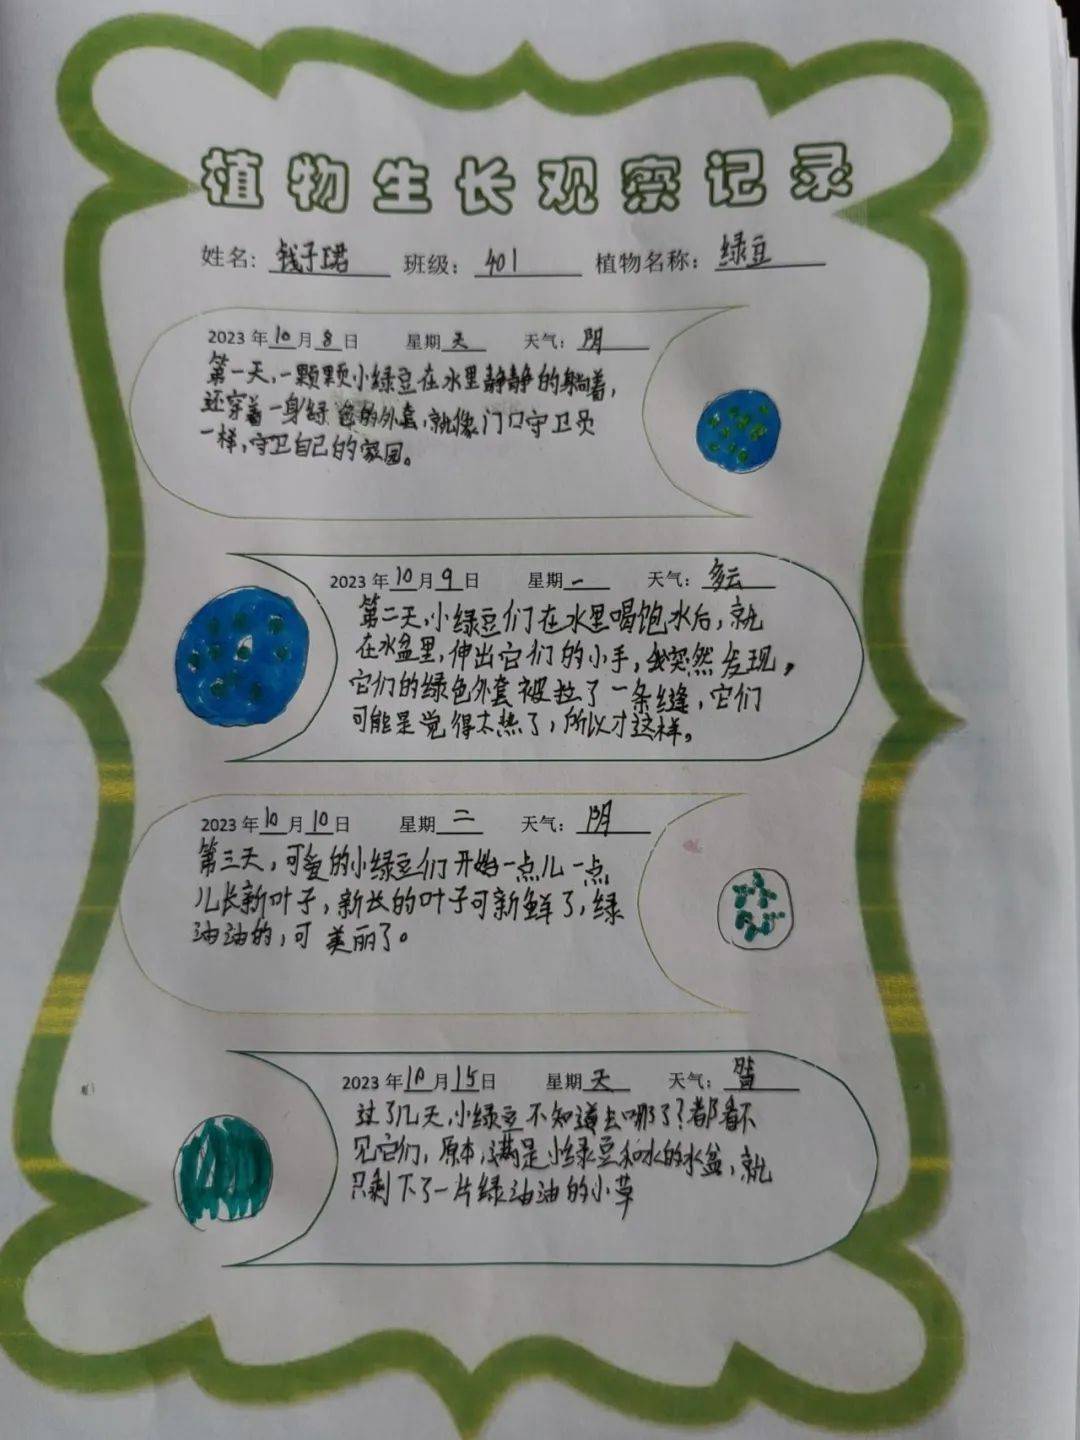 植物生长观察记录
姓名：钱子珺 班级：401 植物名称：绿豆
2023年10月8日 星期天 天气：阴
第一天，一颗颗小绿豆在水里静静的躺着，
还穿着一身绿色的外套，就像门口守卫员
一样，守卫自己的家园。
2023年10月9日 星期一 天气：多云
第二天，小绿豆们在水里喝饱水后，就
在水盆里，伸出它们的小手，我突然发现，
它们的绿色外套被拉了一条缝，它们
可能是觉得太热了，所以才这样。
2023年10月10日 星期二 天气：阴
第三天，可爱的小绿豆们开始一点儿一点
儿长新叶子，新长的叶子可新鲜了，绿
油油的，可美丽了。
2023年10月15日 星期天 天气：
过了几天，小绿豆不知道去哪了？都看不
见它们，原本，满是小绿豆和水的水盆，就
只剩下了一片绿油油的小草